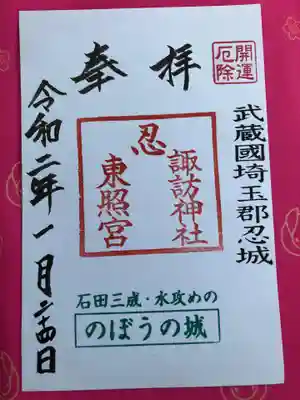 奉拝
開運
厄除
武蔵國埼玉郡忍城
諏訪神社
忍
東照宮
令和二年一月二十四日
石田三成・水攻めの
のぼうの城